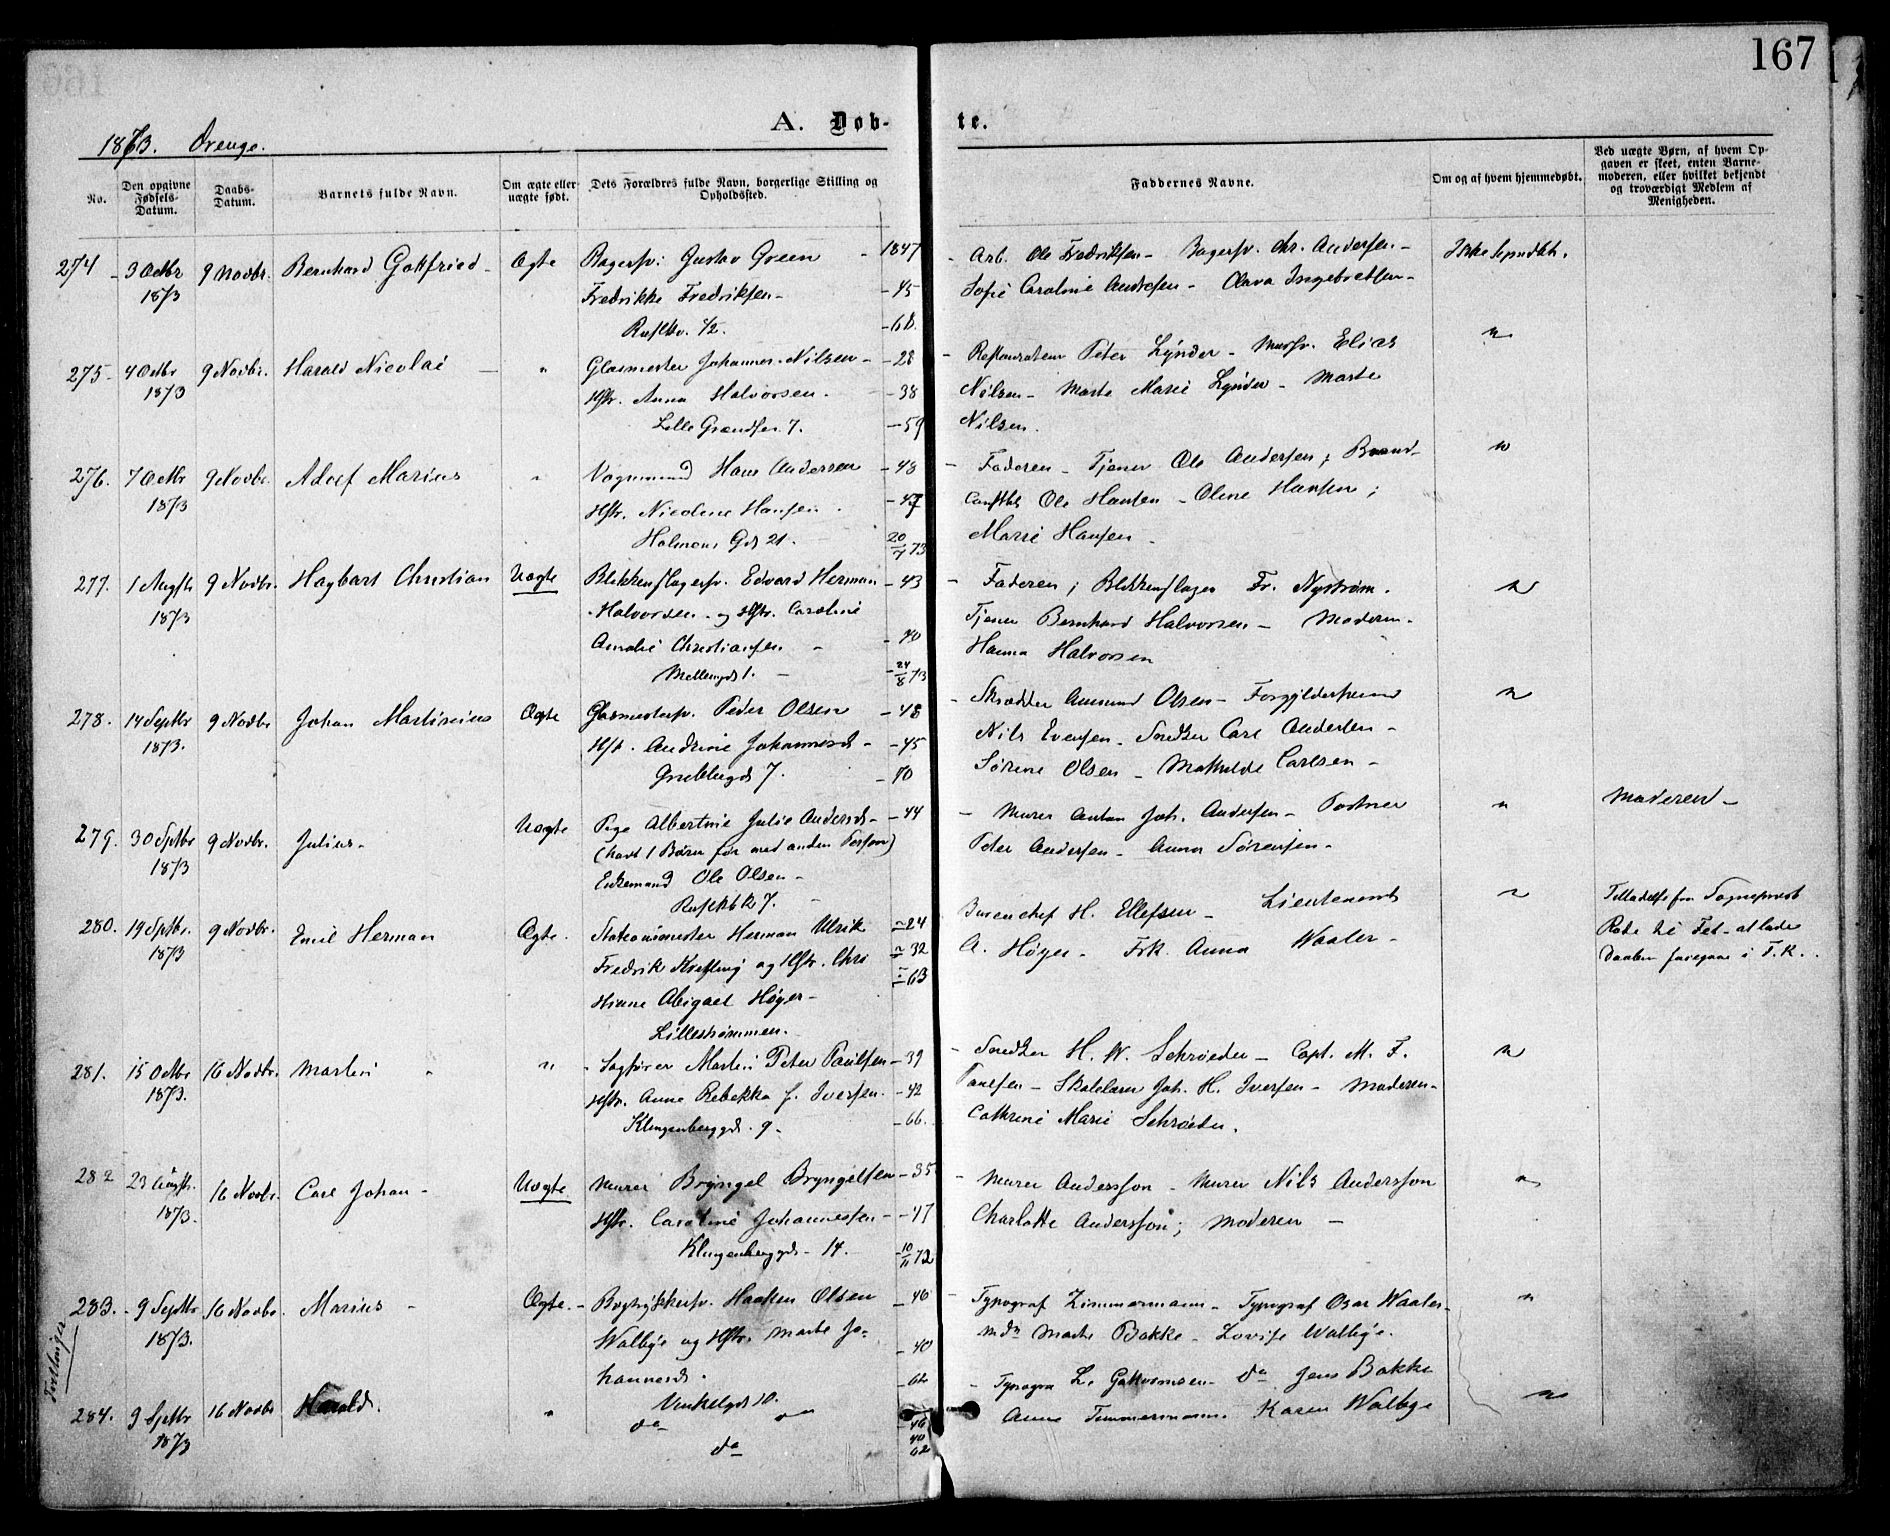 167
A. Døb-
te.
1873. Drenge.
No.
Den opgivne Fødsels-Datum.
Daabs-Datum.
Barnets fulde Navn.
Om ægte eller uægte født.
Dets Forældres fulde Navn, borgerlige Stilling og Opholdssted.
Faddernes Navne.
Om og af hvem hjemmedøbt.
Ved uægte Børn, af hvem Op-
gaven er skeet, enten Barne-
moderen, eller hvilket bekjendt
og troværdigt Medlem af
Menigheden.
274 - 3 Octbr 9 Novbr. Bernhard Gottfried - Ægte Bagersv: Gustav Green - 1847 - Arb. Ole Fredriksen - Bagersv. Chr. Andersen -
1873 Fredrikke Fredriksen - - 45 Sofie Caroline Andersen - Olava Ingebretsen -
1/2. - 68.
275 - 4 Octbr 9 Novbr. Harald Nicolai - " Glasmester Johannes Nilsen - - 28 - Restaurateur Peter Lynder - Elias
1873 Hstr. Anna Halvorsen. - 38 Nilsen - Marte Marie Lynder - Marte
Lille Grændsen 7. - 59 Nilsen.
276. 7 Octbr 9 Novbr. Adolf Marius " Vognmand Hans Andersen - 48 - Faderen - Tjener Ole Andersen; Brand-
1873 Hstr. Nicoline Hansen. - 47 Ole Hansen - Oline Hansen;
Holmens Gd 21. 20/7 73 Marie Hansen -
277. 1 Augst. 9 Novbr. Hagbart Christian Uægte Blikkenslagersv. Edvard Herman - 43 - Faderen; Blikkenslager Fr. Nystrøm.
1873 Halvorsen og Hstr. Caroline Tjener Bernhard Halvorsen - Moderen.
Amalie Christiansen - - 40 Hanna Halvorsen
Mellemgd 1. - 24/8 73
278. 14 Septbr 9 Novbr Johan Martinius Ægte Glasmestersv. Peder Olsen - 48 - Skrædder Amund Olsen - Forgyldersvend
1873. Hst. Andrine Johannesd - - 45 Nils Evensen - Snedker Carl Andersen -
Grubbegd 7. - 70 Sørine Olsen - Mathilde Carlsen -
279. 30 Septbr 9 Novbr. Julius - Uægte Pige Albertine Julie Andersd - - 44 - Murer Anton Joh. Andersen - Portner " Moderen -
1873 (havt 1 Barn før med anden Person) Peter Andersen - Anna Sørensen -
Enkemand Ole Olsen -
7.
280. 19 Septbr. 9 Novbr. Emil Herman Ægte. Stationsmester Herman Ulrik - 24 H. Ellefsen - Lieutenant Tilladelse fra Sognepræst
1873 Fredrik Krefting og Hstr. Chri - 32 A. Høyer - Frk. Anna Waaler - Rode til Fet at lade
stiane Abigael Høyer - - 63 Daaben foregaae i T.K.
Lillestrømmen.
281. 15 Octbr 16 Novbr. Martin " " - Sagfører Martin Peter Paulsen - 39 - Snedker H. W. Schrøeder - Capt. M. F.
1873. Hstr. Anne Rebekka f. Iversen. - 42 Paulsen - Skolelærer Joh. H. Iversen - Moderen -
Klingenberggd. 9 - - 66. Cathrine Marie Schrøeder.
282 23 Augst. 16 Novbr. Carl Johan - Uægte Murer Bryngel Bryngelsen - 35 - Murer Andersson - Murer Nils Andersson
1873. Hstr. Caroline Johannesen - - 47 Charlotte Andersson; Moderen -
Klingenberggd - 14. - 10/11 72
283. - 9 Septbr 16 Novbr. Marius - Ægte. - Bogtrykkersv. Haaken Olsen - 46 - Typograf Zimmermann - Typograf Osar Waaler -
1873. Walbye og Hstr. Marte Jo- - 40 Marte Bakke - Lovise Walbye.
hannesd. - 62 - Typogra L. Guttormsen - do Jens Bakke
Tvillinger
Vinkelgd 10.
284. 9 Septbr 16 Novbr Harald. " do " 46 Anne Timmermann. Karen Walbye
1873 do 40
62